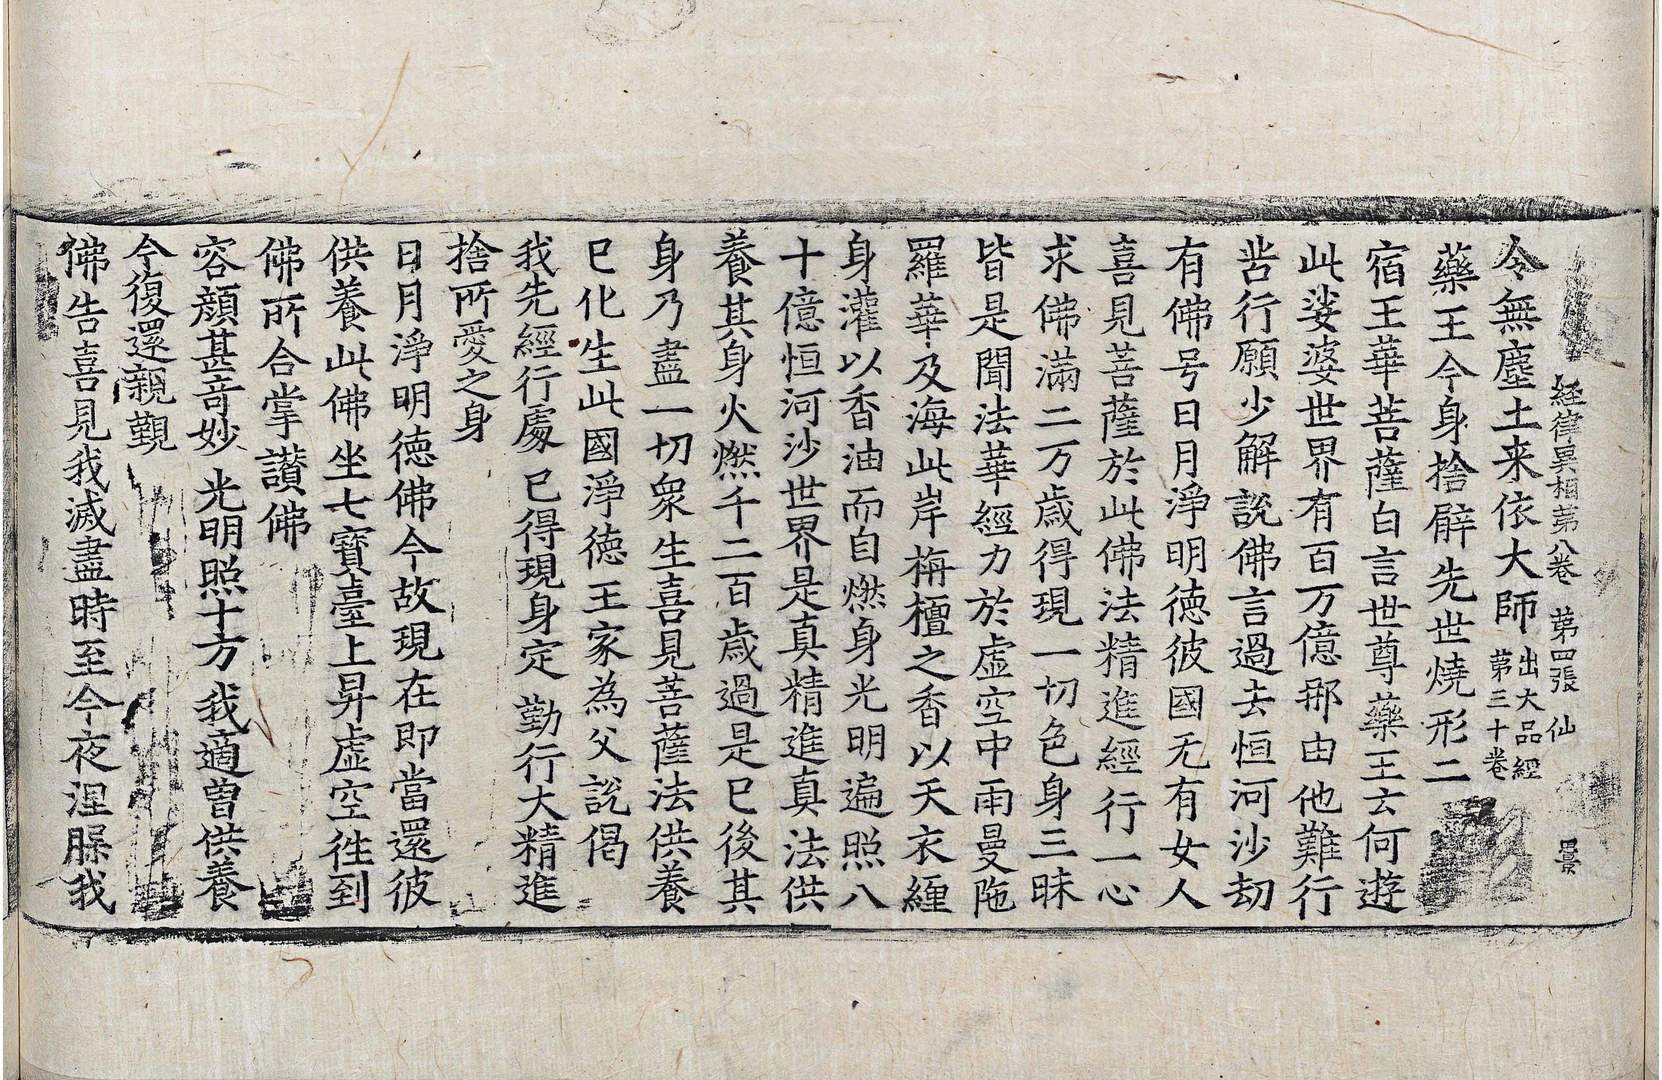 経律異相第八卷 第四張 仙
令無塵土来依大師 出大品經第三十卷
藥王今身捨臂先世燒形二
宿王華菩薩白言世尊藥王云何遊
此娑婆世界有百万億那由他難行
苦行願少解說佛言過去恒河沙劫
有佛号日月淨明德彼國无有女人
喜見菩薩於此佛法精進經行一心
求佛滿二万歲得現一切色身三昧
皆是聞法華經力於虛空中雨曼陁
羅華及海此岸栴檀之香以天衣纏
身灌以香油而自燃身光明遍照八
十億恒河沙世界是真精進真法供
養其身火燃千二百歲過是已後其
身乃盡一切衆生喜見菩薩法供養
已化生此國淨德王家為父說偈
我先經行處 已得現身定 勤行大精進
捨所愛之身
日月淨明德佛今故現在即當還彼
供養此佛坐七寶臺上昇虛空往到
佛所合掌讃佛
容顏甚奇妙 光明照十方 我適曾供養
今復還親覲
佛告喜見我滅盡時至今夜涅槃我